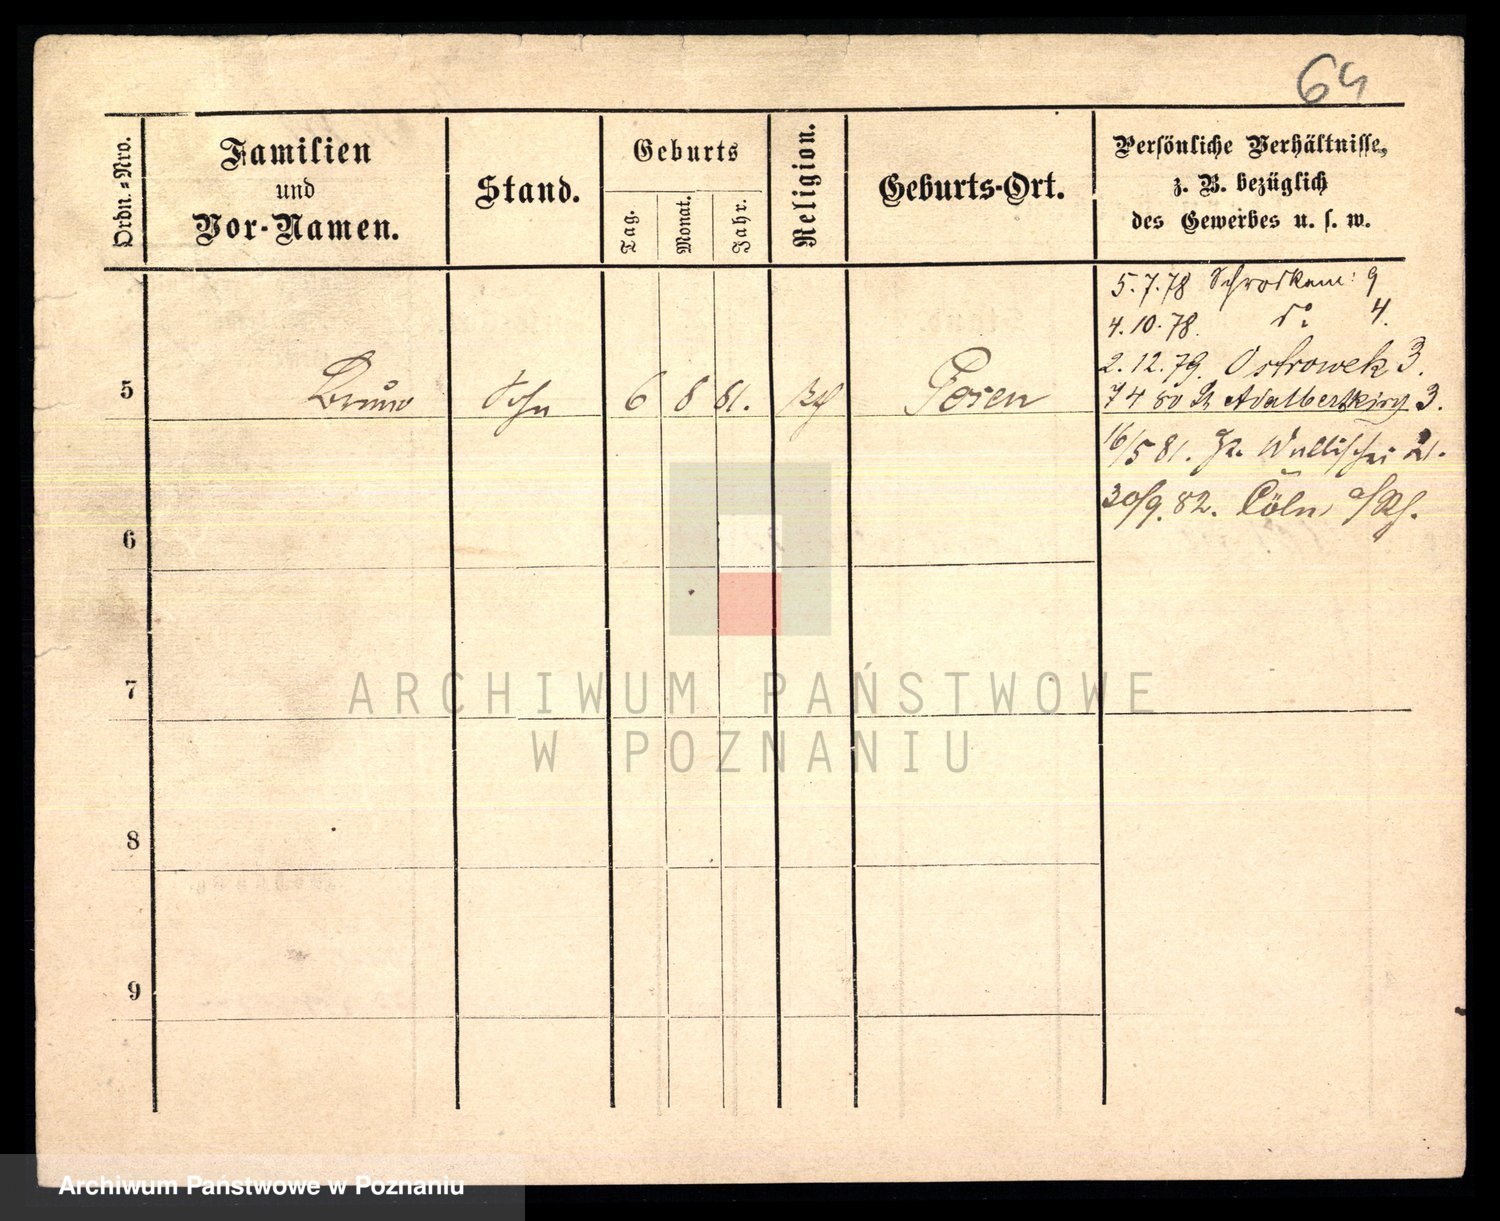 64
Ordn.=Nro.
Familien
und
Vor-Namen.
Stand.
Geburts
Tag.
Monat.
Jahr.
Religion.
Geburts-Ort.
Persönliche Verhältnisse,
z. B. bezüglich
des Gewerbes u. s. w.
5.7.78 9
4.10.78. do 4.
2.12.79. Ostrowek 3.
5 Bruno Sohn 6 8 81. Posen
7 4 80 Adalbertkirch 3.
16/5 81. Wallischei 21.
30/9. 82. Cöln a/Rh.
6
7
8
9
ARCHIWUM PAŃSTWOWE
W POZNANIU
Archiwum Państwowe w Poznaniu